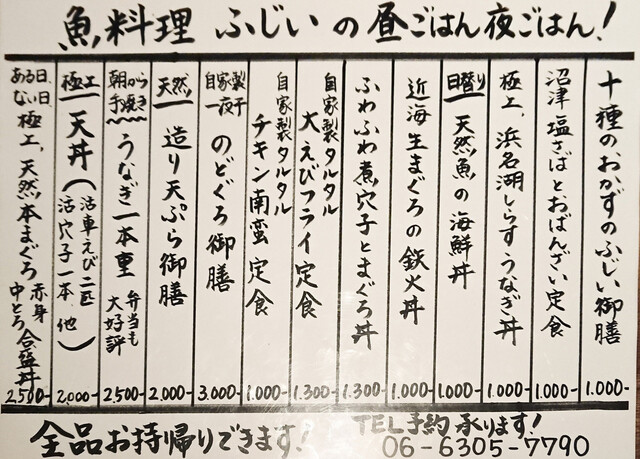 魚料理 ふじいの昼ごはん夜ごはん!
十種のおかずのふじい御膳 1.000-
沼津 塩さばとおばんざい定食 1.000-
極上、浜名湖しらすうなぎ丼 1.000-
日替り 天然魚の海鮮丼 1.000-
近海生まぐろの鉄火丼 1.000-
ふわふわ煮穴子とまぐろ丼 1.300-
自家製タルタル
大えびフライ定食 1.300-
自家製タルタル
チキン南蛮定食 1.000-
自家製
一夜干 のどぐろ御膳 3.000-
天然! 造り天ぷら御膳 2.000-
朝から
手焼き うなぎ一本重 弁当も
大好評 2.500-
極上 天丼(活車えび二匹
活穴子一本 他) 2.000-
ある日、
ない日、極上、天然本まぐろ 赤身
中とろ 合盛丼 2.500-
全品お持帰りできます!
TEL予約承ります!
06-6305-7790